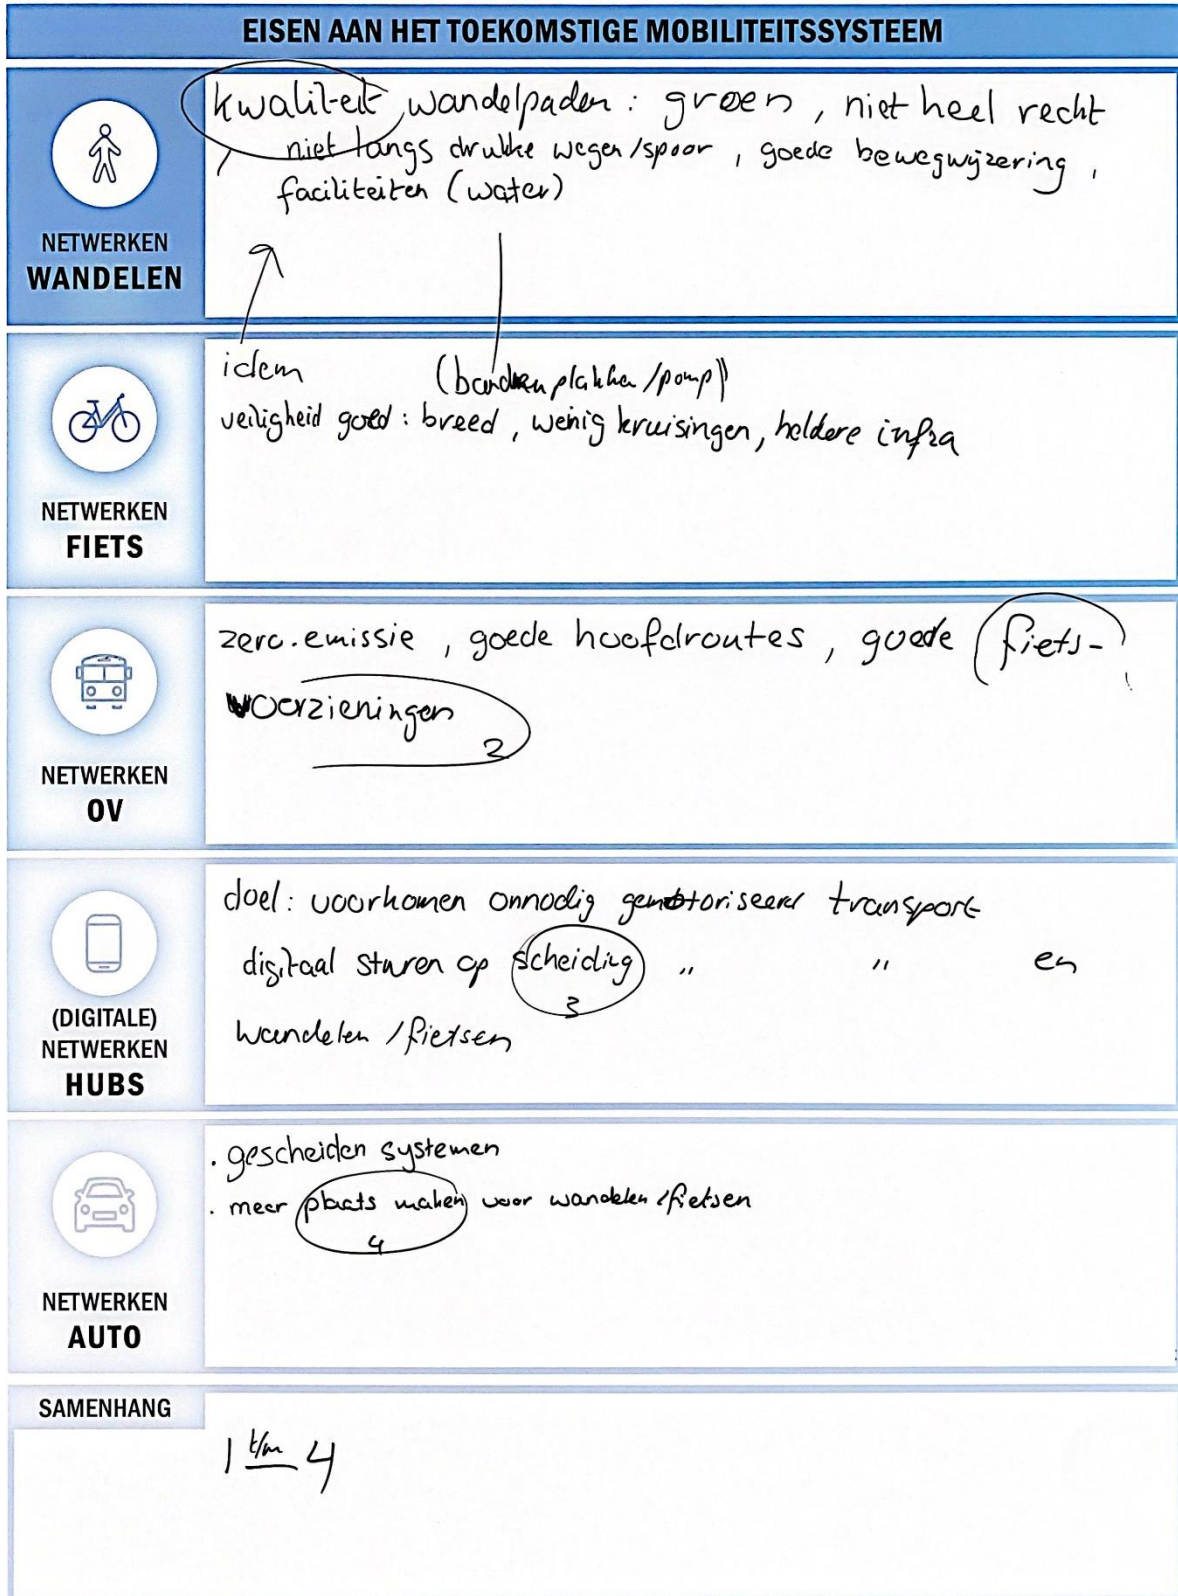 EISEN AAN HET TOEKOMSTIGE MOBILITEITSSYSTEEM
NETWERKEN
WANDELEN
kwaliteit wandelpaden : groen , niet heel recht
niet langs drukke wegen/spoor , goede bewegwijzering ,
faciliteiten (water)
NETWERKEN
FIETS
idem (banden plakken/pomp)
veiligheid goed : breed , weinig kruisingen, heldere infra
NETWERKEN
OV
zero.emissie , goede hoofdroutes , goede fiets-
voorzieningen
2
(DIGITALE)
NETWERKEN
HUBS
doel: voorkomen onnodig gemotoriseerd transport
digitaal sturen op scheiding " " en
3
wandelen / fietsen
NETWERKEN
AUTO
. gescheiden systemen
. meer plaats maken voor wandelen/fietsen
4
SAMENHANG
1 t/m 4